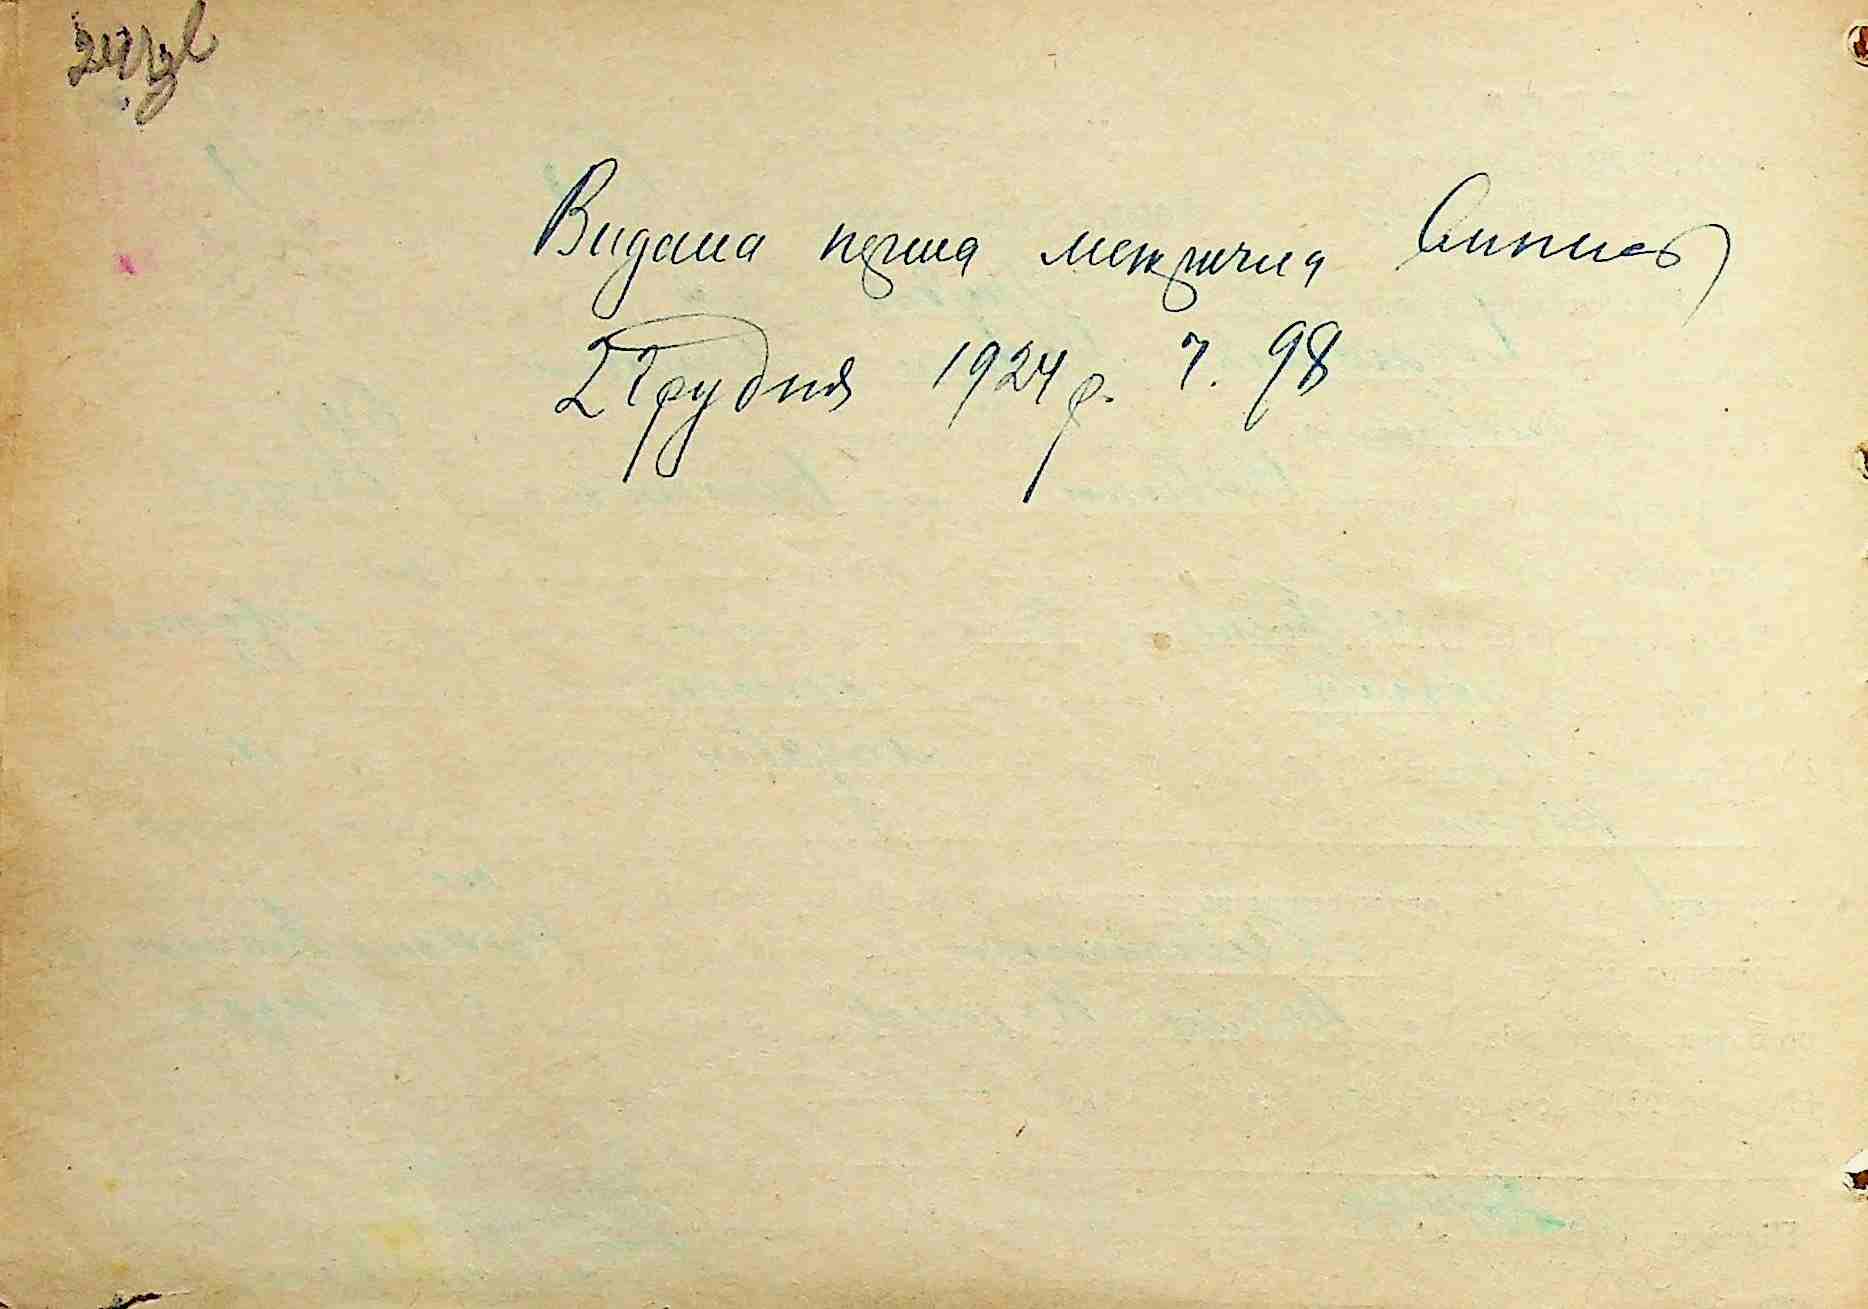 Видана перша метрична Випись
2 Грудня 1924 р. Ч. 98